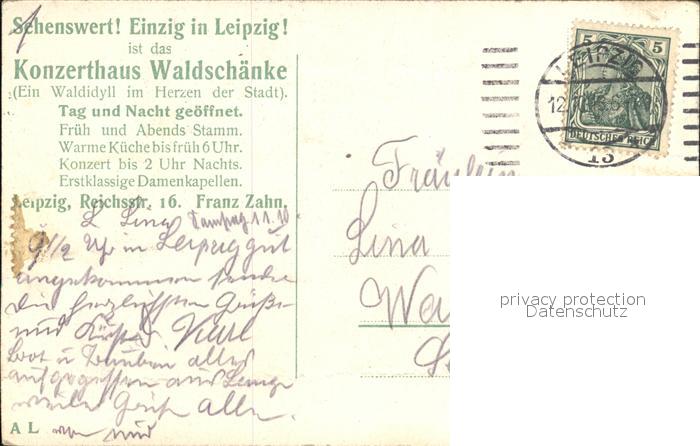 Sehenswert! Einzig in Leipzig!
ist das
Konzerthaus Waldschänke
(Ein Waldidyll im Herzen der Stadt).
Tag und Nacht geöffnet.
Früh und Abends Stamm.
Warme Küche bis früh 6 Uhr.
Konzert bis 2 Uhr Nachts.
Erstklassige Damenkapellen.
Leipzig, Reichsstr. 16. Franz Zahn.
L. Lina
9 1/2 Uhr in Leipzig gut
angekommen sende
die herzlichsten Grüße
und Küsse Karl
Brot u Trauben alles
aufgegessen
viele Grüße allen
von mir
A L
5 5
DEUTSCHES REICH
LEIPZIG
13
Fräulein
Lina
privacy protection
Datenschutz